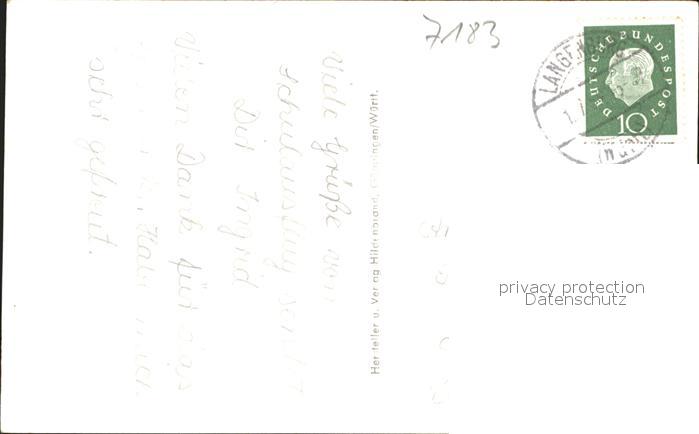 7183
DEUTSCHE BUNDESPOST
10
Viele Grüße von
Schulausflug sendet
Dir Ingrid
Vielen Dank für das
Habe mich
sehr gefreut.
Hersteller u. Verlag Hildenbrand, Göppingen/Württ.
privacy protection
Datenschutz